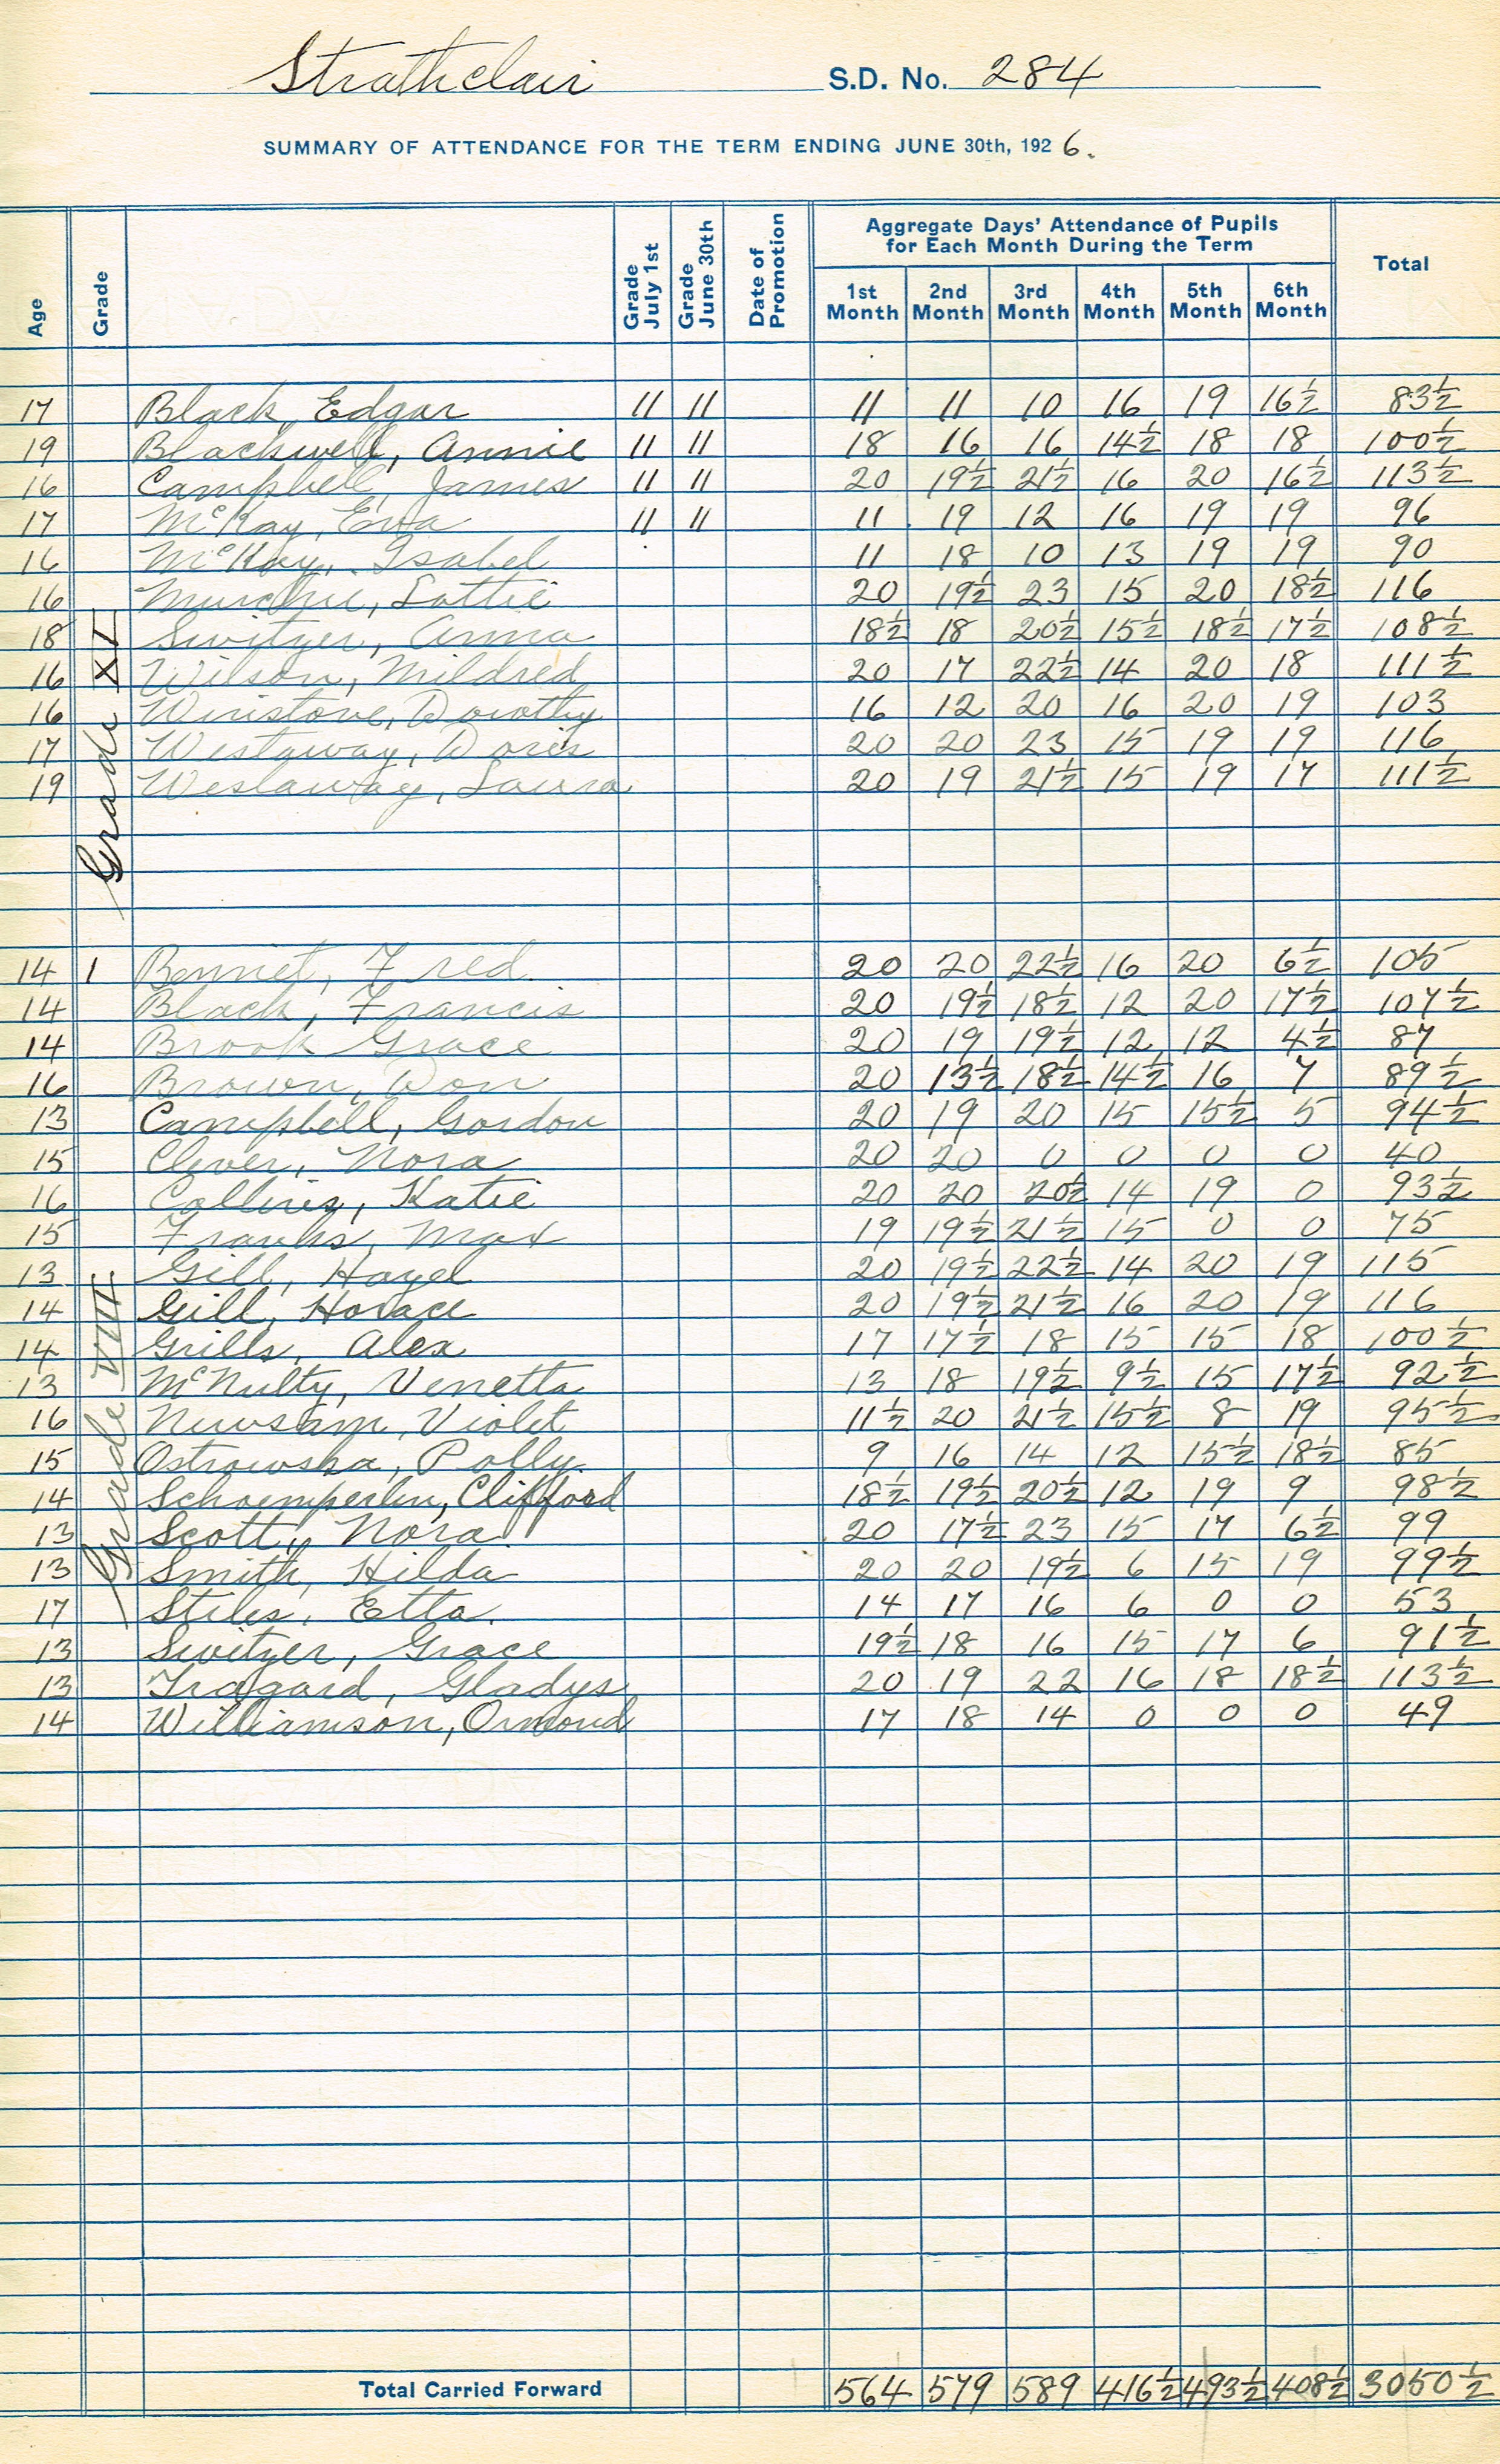 Strathclair S.D. No. 284
SUMMARY OF ATTENDANCE FOR THE TERM ENDING JUNE 30th, 1926.
Age Grade Grade July 1st Grade June 30th Date of Promotion Aggregate Days' Attendance of Pupils for Each Month During the Term Total
1st Month 2nd Month 3rd Month 4th Month 5th Month 6th Month
Grade XI
17 Black, Edgar 11 11 11 11 10 16 19 16½ 83½
19 Blackwell, Annie 11 11 18 16 16 14½ 18 18 100½
16 Campbell, James 11 11 20 19½ 21½ 16 20 16½ 113½
17 McKay, Eva 11 11 11 19 12 16 19 19 96
16 McKay, Isabel 11 18 10 13 19 19 90
16 Murchie, Lottie 20 19½ 23 15 20 18½ 116
18 Switzer, Anna 18½ 18 20½ 15½ 18½ 17½ 108½
16 Wilson, Mildred 20 17 22½ 14 20 18 111½
16 Winstone, Dorothy 16 12 20 16 20 19 103
17 Westaway, Doris 20 20 23 15 19 19 116
19 Westaway, Laura 20 19 21½ 15 19 17 111½
Grade VIII
14 1 Bennet, Fred. 20 20 22½ 16 20 6½ 105
14 Black, Francis 20 19½ 18½ 12 20 17½ 107½
14 Brook Grace 20 19 19½ 12 12 4½ 87
16 Brown, Don 20 13½ 18½ 14½ 16 7 89½
13 Campbell, Gordon 20 19 20 15 15½ 5 94½
15 Clever, Nora 20 20 0 0 0 0 40
16 Collins, Katie 20 20 20½ 14 19 0 93½
15 Franks, Max 19 19½ 21½ 15 0 0 75
13 Gill, Hazel 20 19½ 22½ 14 20 19 115
14 Gill, Horace 20 19½ 21½ 16 20 19 116
14 Grills, Alex 17 17½ 18 15 15 18 100½
13 McNulty, Venetta 13 18 19½ 9½ 15 17½ 92½
16 Newsam, Violet 11½ 20 21½ 15½ 8 19 95½
15 Ostrowska, Polly 9 16 14 12 15½ 18½ 85
14 Schoemperlen, Clifford 18½ 19½ 20½ 12 19 9 98½
13 Scott, Nora 20 17½ 23 15 17 6½ 99
13 Smith, Hilda 20 20 19½ 6 15 19 99½
17 Stiles, Etta. 14 17 16 6 0 0 53
13 Switzer, Grace 19½ 18 16 15 17 6 91½
13 Tragard, Gladys 20 19 22 16 18 18½ 113½
14 Williamson, Ormond 17 18 14 0 0 0 49
Total Carried Forward 564 579 589 416½ 493½ 408½ 3050½